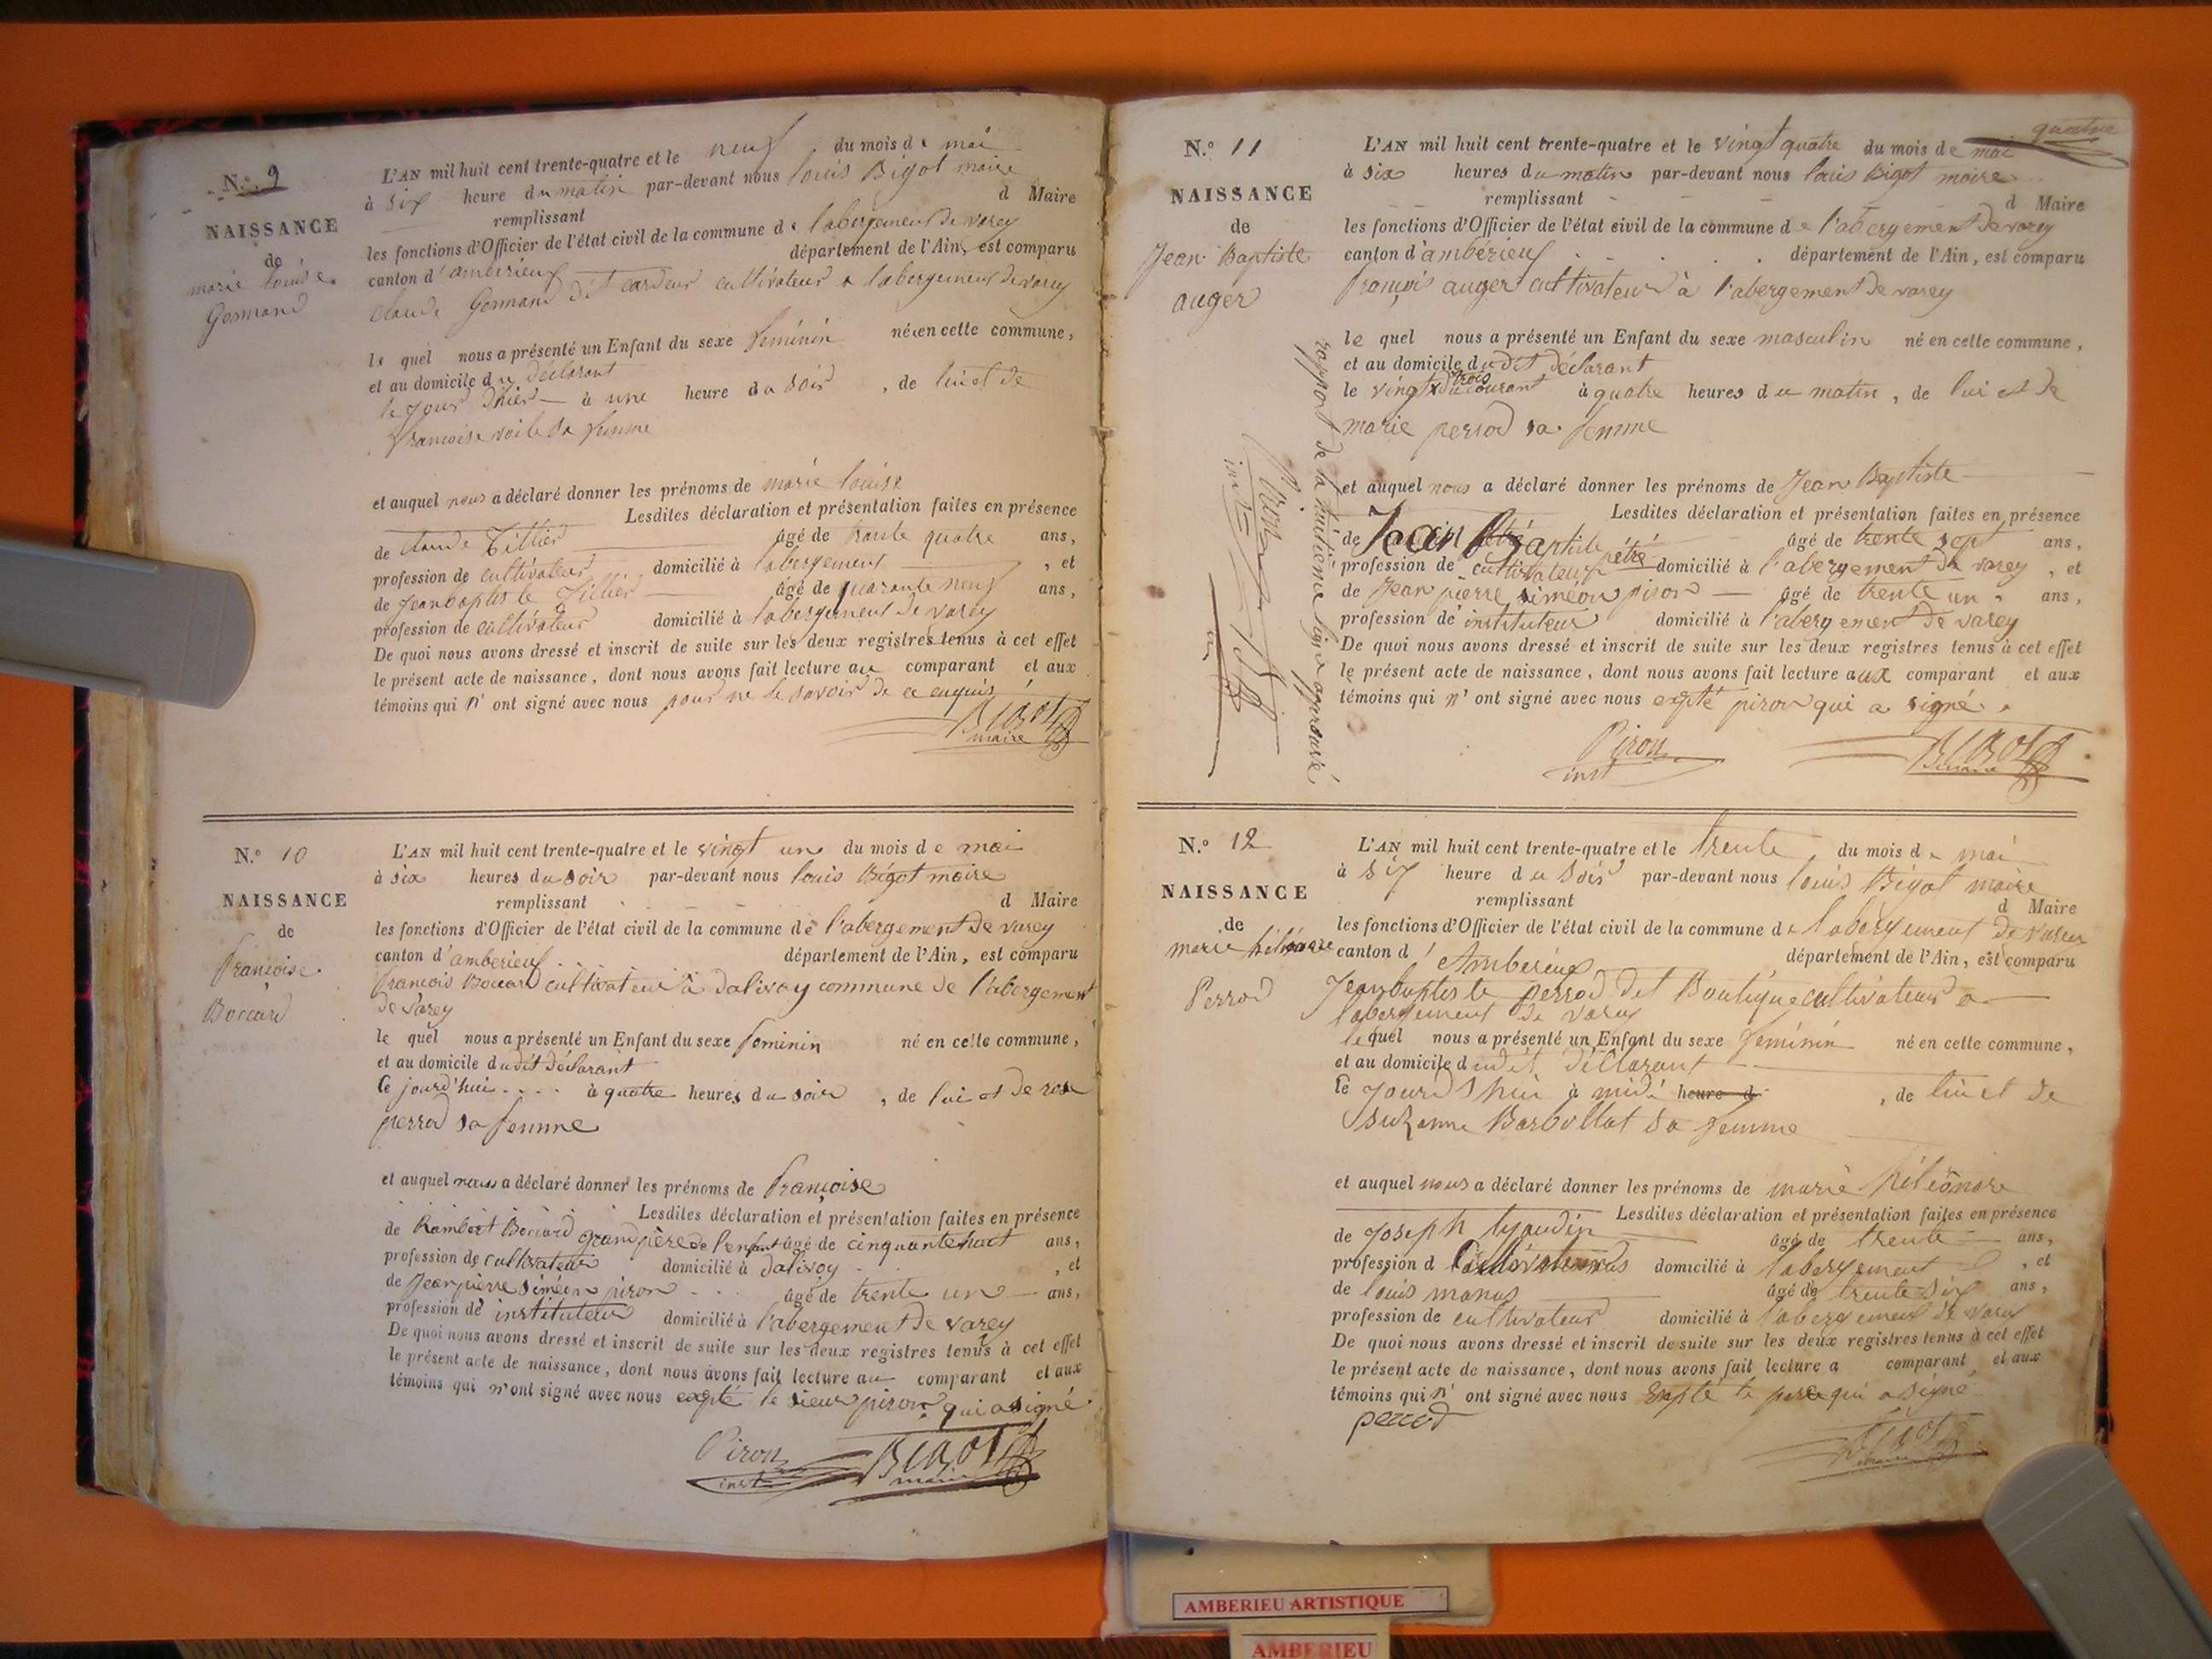 N.º 9
NAISSANCE
de
marie louise
Germand
L'AN mil huit cent trente-quatre et le neuf du mois de mai
à six heure du matin par-devant nous louis Bigot maire
remplissant d Maire
les fonctions d'Officier de l'état civil de la commune de l'abergement de varey
canton d'amberieux département de l'Ain, est comparu
claude Germand dit cardeur cultivateur a labergement de varey
le quel nous a présenté un Enfant du sexe féminin né en cette commune,
et au domicile du déclarant
le jour d'hier à une heure du soir, de lui et de
francoise sa femme
et auquel nous a déclaré donner les prénoms de marie louise
Lesdites déclaration et présentation faites en présence
de claude Tillier âgé de trente quatre ans,
profession de cultivateur domicilié à labergement, et
de jean baptiste Tillier âgé de quarante neuf ans,
profession de cultivateur domicilié à labergement de varey
De quoi nous avons dressé et inscrit de suite sur les deux registres tenus à cet effet
le présent acte de naissance, dont nous avons fait lecture au comparant et aux
témoins qui n'ont signé avec nous pour ne le savoir de ce enquis
Bigot
maire
N.º 10
NAISSANCE
de
françoise
Boccard
L'AN mil huit cent trente-quatre et le vingt un du mois de mai
à six heures du soir par-devant nous louis Bigot maire
remplissant d Maire
les fonctions d'Officier de l'état civil de la commune de l'abergement de varey
canton d'amberieux département de l'Ain, est comparu
françois Boccard cultivateur à dalivoy commune de l'abergement
de varey
le quel nous a présenté un Enfant du sexe feminin né en cette commune,
et au domicile dudit déclarant
ce jourd'hui à quatre heures du soir, de lui et de rose
perrod sa femme
et auquel nous a déclaré donner les prénoms de françoise
Lesdites déclaration et présentation faites en présence
de Rambert Boccard grand père de l'enfant âgé de cinquante huit ans,
profession de cultivateur domicilié à dalivoy, et
de jean pierre siméon piron âgé de trente un ans,
profession de instituteur domicilié à l'abergement de varey
De quoi nous avons dressé et inscrit de suite sur les deux registres tenus à cet effet
le présent acte de naissance, dont nous avons fait lecture au comparant et aux
témoins qui n'ont signé avec nous expté le sieur piron qui a signé
Piron Bigot
inst maire
quatre
N.º 11
NAISSANCE
de
Jean Baptiste
auger
L'AN mil huit cent trente-quatre et le vingt quatre du mois de mai
à six heures du matin par-devant nous louis Bigot maire
remplissant d Maire
les fonctions d'Officier de l'état civil de la commune de l'abergement de varey
canton d'ambérieux département de l'Ain, est comparu
françois auger cultivateur à l'abergement de varey
le quel nous a présenté un Enfant du sexe masculin né en cette commune,
et au domicile dudit déclarant
le vingt trois du courant à quatre heures du matin, de lui et de
marie perrod sa femme
et auquel nous a déclaré donner les prénoms de Jean Baptiste
Lesdites déclaration et présentation faites en présence
de Jean Baptiste pétré âgé de trente sept ans,
profession de cultivateur domicilié à l'abergement de varey, et
de jean pierre siméon piron âgé de trente un ans,
profession de instituteur domicilié à l'abergement de varey
De quoi nous avons dressé et inscrit de suite sur les deux registres tenus à cet effet
le présent acte de naissance, dont nous avons fait lecture aux comparant et aux
témoins qui n'ont signé avec nous expté piron qui a signé.
Piron Bigot
inst maire
rapport de la huitième ligne approuvé
Piron
inst
N.º 12
NAISSANCE
de
marie héléonore
Perrod
L'AN mil huit cent trente-quatre et le trente du mois de mai
à six heure du soir par-devant nous louis Bigot maire
remplissant d Maire
les fonctions d'Officier de l'état civil de la commune de labergement de varey
canton d'Amberieux département de l'Ain, est comparu
jean baptiste perrod dit Boutique cultivateur a
labergement de varey
le quel nous a présenté un Enfant du sexe féminin né en cette commune,
et au domicile dudit déclarant
le jourd'hui à midi heure d, de lui et de
suzanne Barbollat sa femme
et auquel nous a déclaré donner les prénoms de marie héléonore
Lesdites déclaration et présentation faites en présence
de joseph âgé de trente ans,
profession d cultivateur domicilié à labergement, et
de louis manus âgé de trente six ans,
profession de cultivateur domicilié à labergement de varey
De quoi nous avons dressé et inscrit de suite sur les deux registres tenus à cet effet
le présent acte de naissance, dont nous avons fait lecture a comparant et aux
témoins qui n'ont signé avec nous expté le père qui a signé
perrod
Bigot
maire
AMBERIEU ARTISTIQUE
AMBERIEU